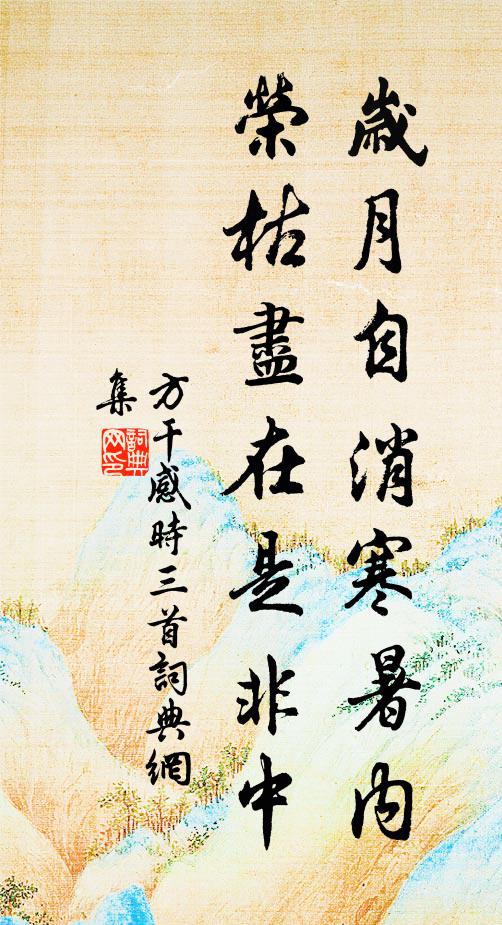 歲月自消寒暑內
榮枯盡在是非中
方干感時三首詞典網
集
詞典網印